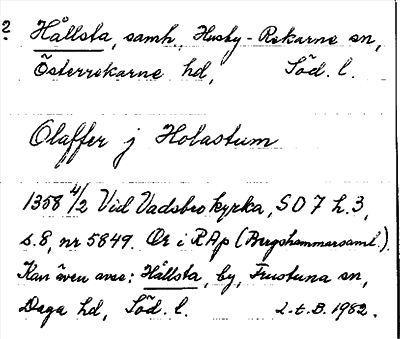 ? Hållsta, samh, Husby-Rekarne sn,
Österrekarne hd, Söd. l.
Olaffer j Holastum
1358 4/2 Vid Vadsbro kyrka, SD 7 h. 3,
s. 8, nr 5849. Or i RAp (Bergshammarsaml.).
Kan även avse: Hållsta, by, Frustuna sn,
Daga hd, Söd. l. L.t.B. 1982.